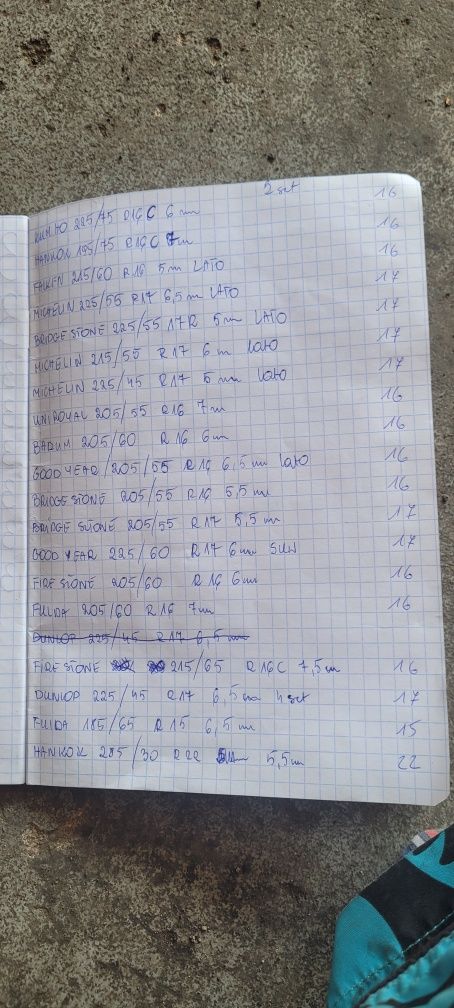 KUMHO 225/75 R16C 6mm 2 set 16
HANKOK 195/75 R16C 7m 16
FALKEN 215/60 R16 5m LATO 16
MICHELIN 225/55 R17 6,5m LATO 17
BRIDGESTONE 225/55 17R 5m LATO 17
MICHELIN 215/55 R17 6m lato 17
MICHELIN 225/45 R17 5mm lato 17
UNIROYAL 205/55 R16 7m 16
BARUM 205/60 R16 6m 16
GOODYEAR 205/55 R16 6,5m lato 16
BRIDGESTONE 205/55 R16 5,5m 16
BRIDGESTONE 205/55 R17 5,5m 17
GOOD YEAR 225/60 R17 6mm SUW 17
FIRESTONE 205/60 R16 6mm 16
FULDA 205/60 R16 7mm 16
DUNLOP 225/45 R17 6,5mm
FIRESTONE 215/65 R16C 7,5m 16
DUNLOP 225/45 R17 6,5mm 4 set 17
FULDA 185/65 R15 6,5m 15
HANKOK 285/30 R22 5,5m 22